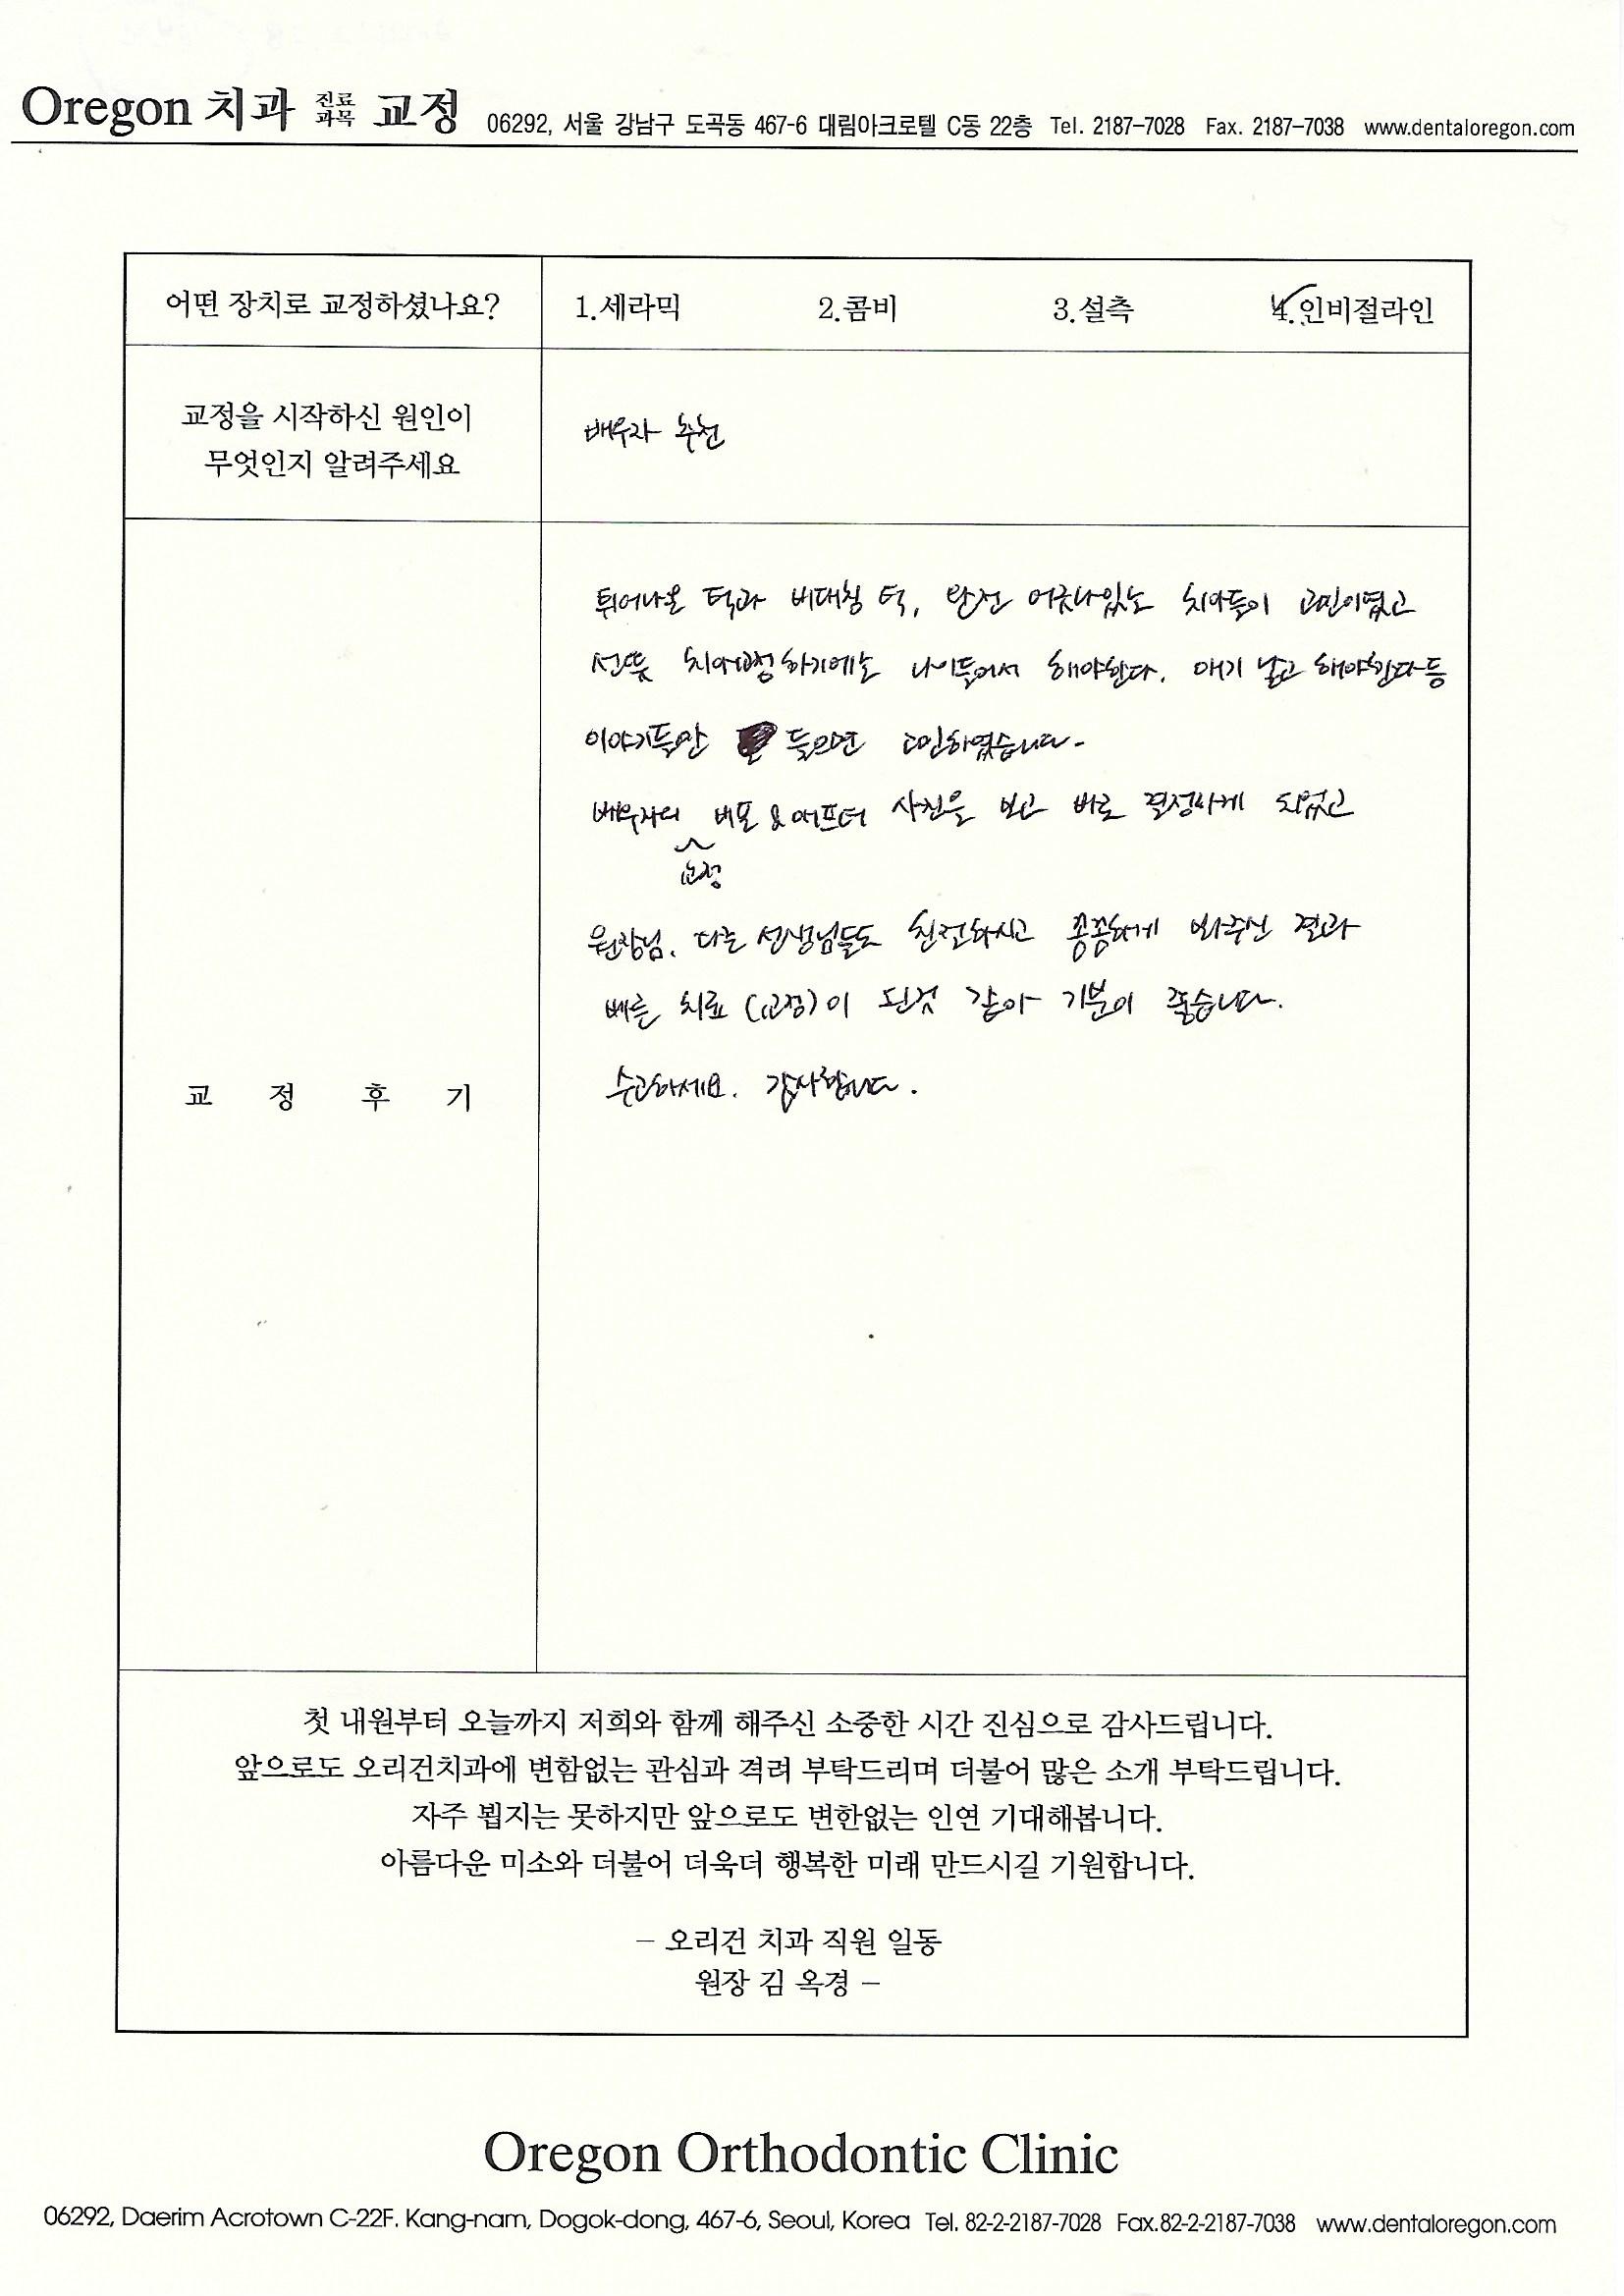 Oregon 치과 진료과목 교정 06292, 서울 강남구 도곡동 467-6 대림아크로텔 C동 22층 Tel. 2187-7028 Fax. 2187-7038 www.dentaloregon.com
어떤 장치로 교정하셨나요? 1.세라믹 2.콤비 3.설측 4.인비절라인
교정을 시작하신 원인이
무엇인지 알려주세요
배우자 추천
튀어나온 턱과 비대칭 턱, 완전 어긋나있는 치아들이 고민이였고
선뜻 치아교정하기에는 나이들어서 해야한다. 애기 낳고 해야한다 등
이야기들만 들으면 고민하였습니다.
배우자의 교정 비포 & 애프터 사진을 보고 바로 결정하게 되었고
원장님, 다른 선생님들도 친절하시고 꼼꼼하게 봐주신 결과
빠른 치료 (교정)이 된것 같아 기분이 좋습니다.
수고하세요. 감사합니다.
교 정 후 기
첫 내원부터 오늘까지 저희와 함께 해주신 소중한 시간 진심으로 감사드립니다.
앞으로도 오리건치과에 변함없는 관심과 격려 부탁드리며 더불어 많은 소개 부탁드립니다.
자주 뵙지는 못하지만 앞으로도 변한없는 인연 기대해봅니다.
아름다운 미소와 더불어 더욱더 행복한 미래 만드시길 기원합니다.
– 오리건 치과 직원 일동
원장 김 옥경 –
Oregon Orthodontic Clinic
06292, Daerim Acrotown C-22F. Kang-nam, Dogok-dong, 467-6, Seoul, Korea Tel. 82-2-2187-7028 Fax.82-2-2187-7038 www.dentaloregon.com